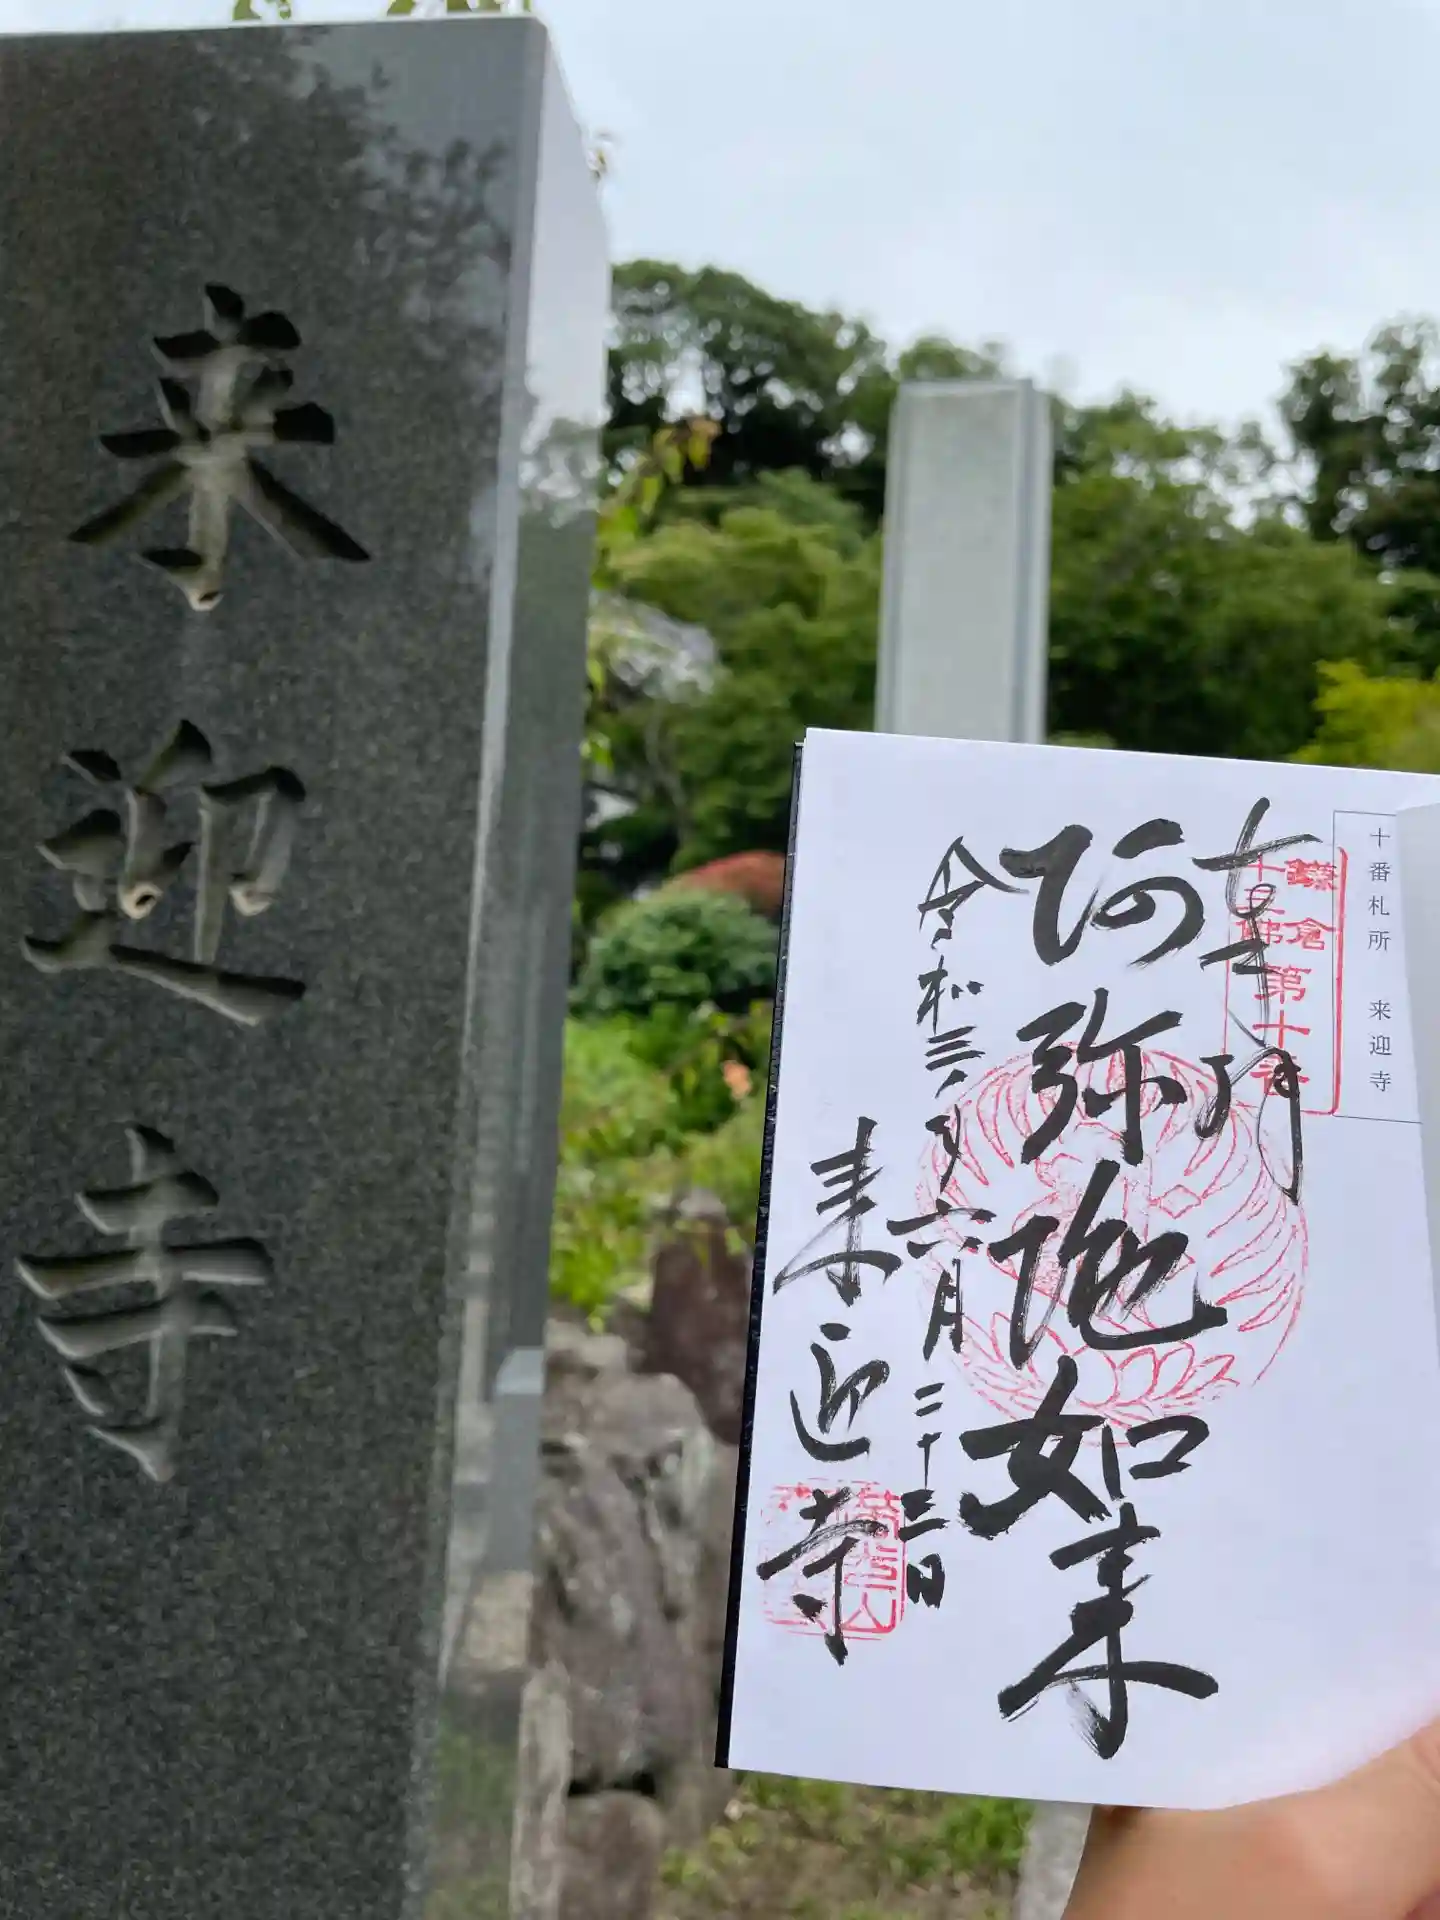 来迎寺
十番札所 来迎寺
鎌倉
十三佛
第十番
奉拝
阿弥陀如来
令和三年六月二十三日
来迎寺